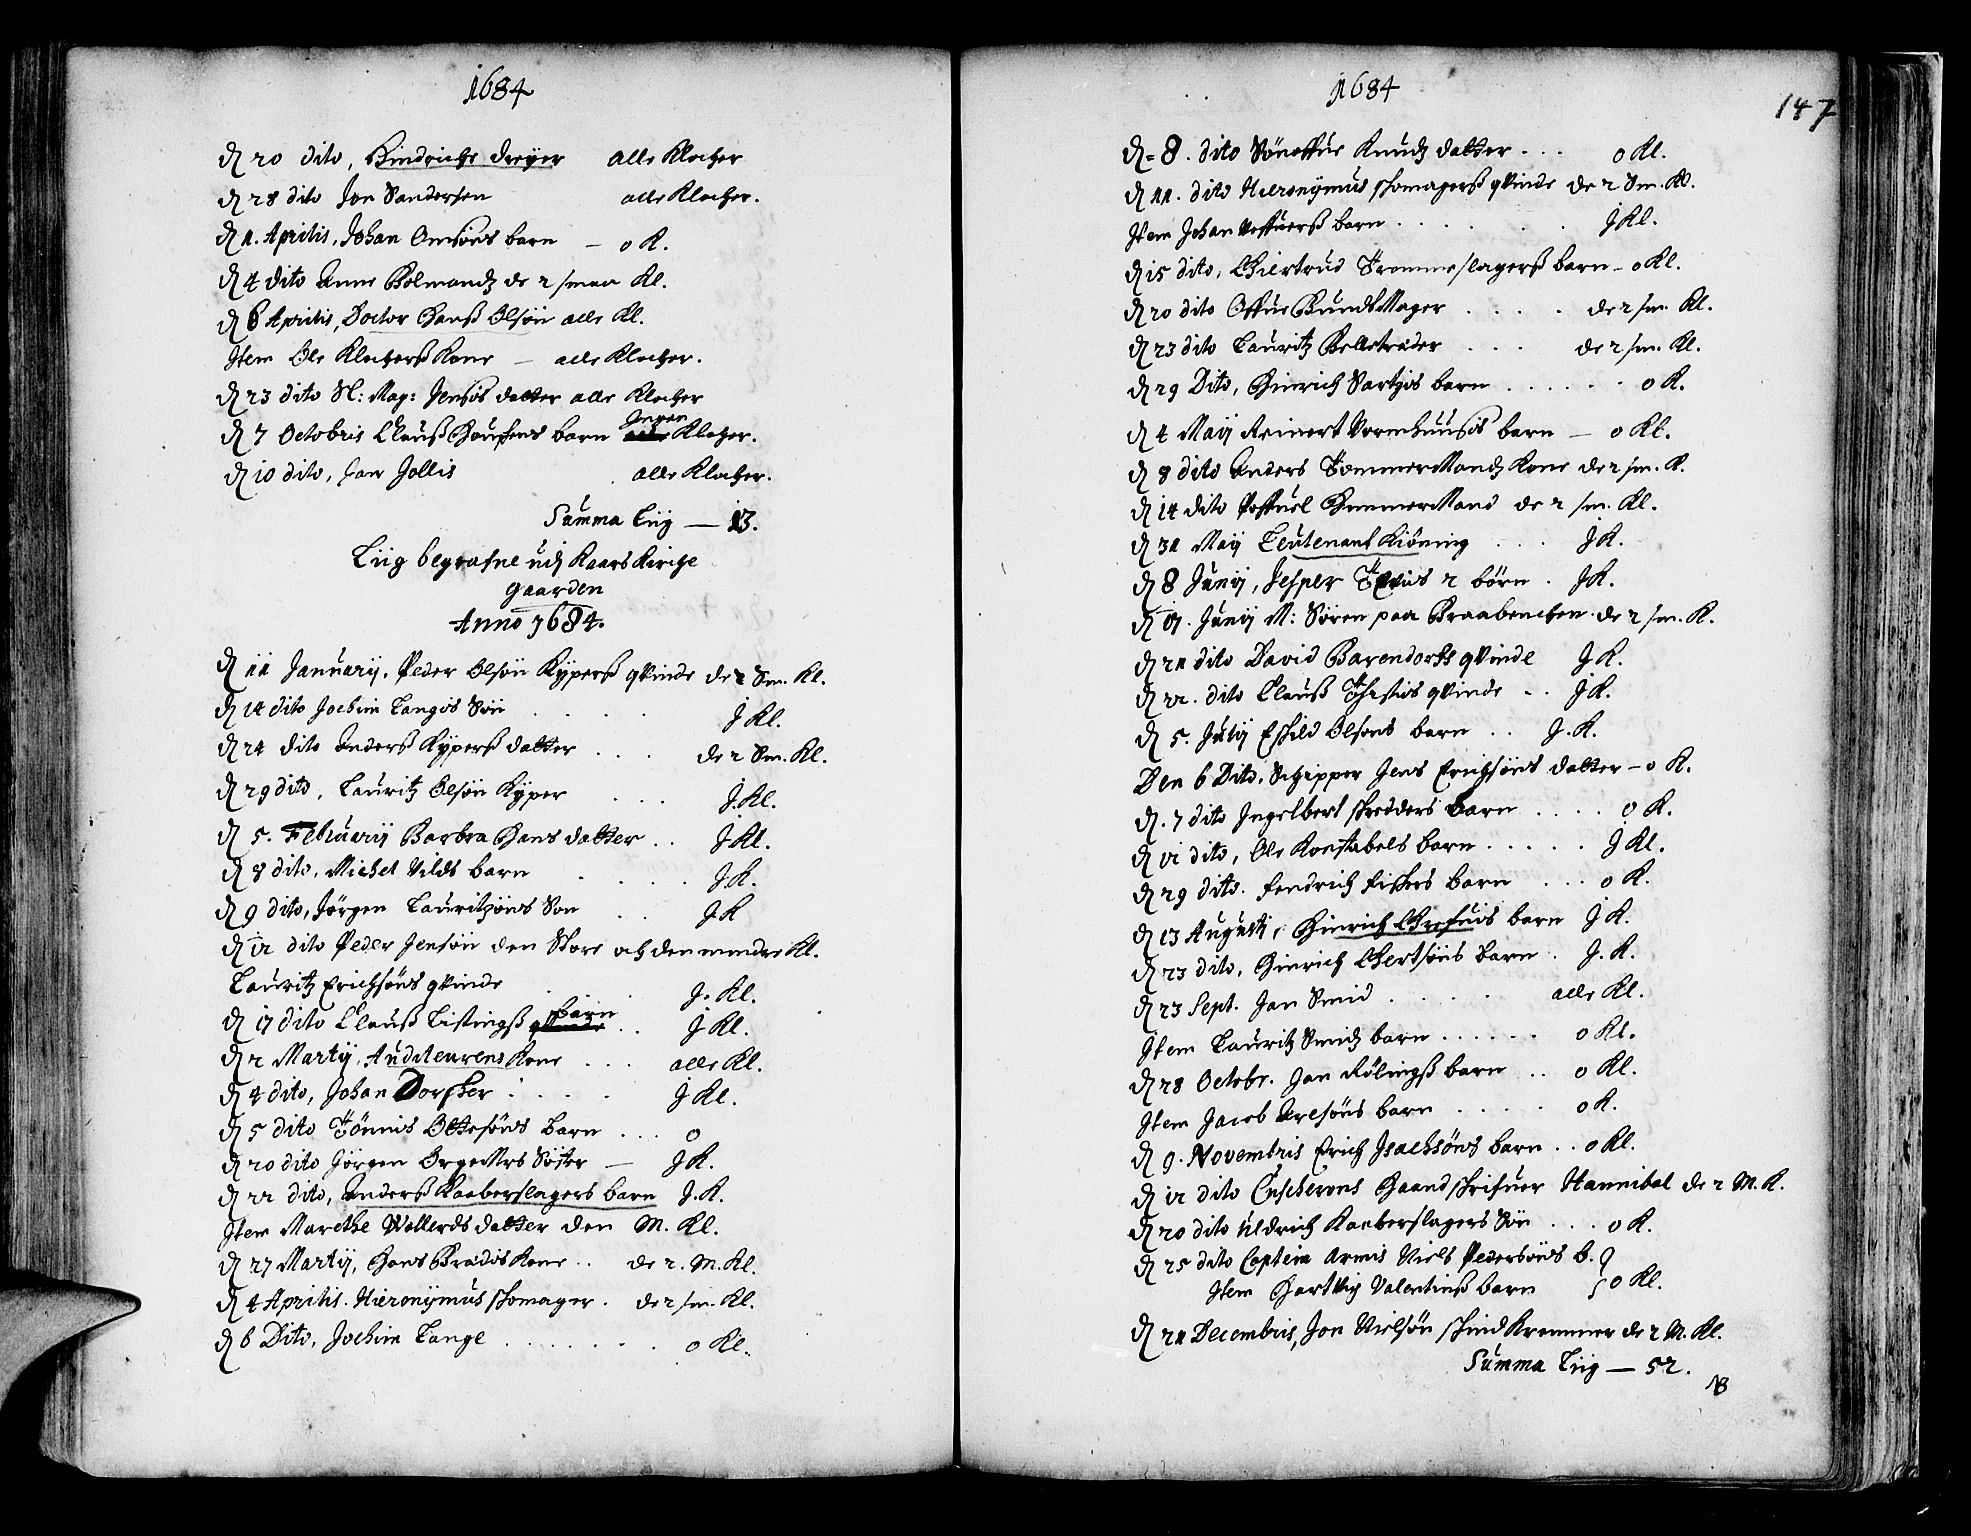 1684
D 20 dito, Hindrichs dreyer alle Klocher
D 28 dito Jon Sandersen alle Klocher.
D 1. Aprilis, Johan Omsöns barn – o K.
D 4 dito Anne Holmands de 2 smaa Kl.
D 6 Aprilis, Doctor Hanß Olsön alle Kl.
Item Ole Klocherß Kone – alle Klocher.
D 23 dito Sl: Mag: Jensøs datter alle Klocher
D 7 Octobris Clauß Hansens barn Ingen Klocher.
D 10 dito, Jan Jollis alle Klocher.
Summa Liig — 13.
Liig begrafne udj Kaars Kirche
gaarden
Anno 1684.
D 11 Januarij, Peder Olsön Kyperß qvinde de 2 Sm. Kl.
D 14 dito Jochim Langes Sön . . . . J Kl.
D 24 dito Anderß Kyperß datter . . . de 2 Sm. Kl.
D 29 dito, Lauritz Olsön Kyper . . . J. Kl.
D 5. Februarij Barbra Hans datter . . J Kl.
D 8 dito, Michel Vilds barn . . . . J. K.
D 9 dito, Jörgen Lauritzöns Son . . J K
D 12 dito Peder Jensön den Store och den mindre Kl.
Lauritz Erichsöns qvinde . . . J. Kl.
D 17 dito Clauß Listingß barn . . J Kl.
D 2 Martij, Auditeurens Kone . . . alle Kl.
D 4 dito, Johan Dorscher . . . . J Kl.
D 5 dito Tönnis Ottesöns barn . . . o
D 20 dito Jörgen Orgemrs Söster — J K.
D 22 dito, Anderß Kaaberslagers barn J. K.
Item Marethe Wollerds datter den M. Kl.
D 27 Martij, Hans Brødis Kone . . de 2. M. Kl.
D 4 Aprilis. Hieronijmus skomager . de 2 sm. Kl.
D 6 Dito, Jochim Lange . . . . . . . o Kl.
1684
147
D. 8. dito Sönoffue Knudz datter . . . o Kl.
D 11. dito Hieronijmus skomagerß qvinde de 2 Sm. Kl.
Item Johan Voffuerß barn . . . . . . J Kl.
D 15 dito, Chiertrud Trommeslagerß barn – o Kl.
D 20 dito Offue BundtMager . . . . de 2 sm. Kl.
D 23 dito Lauritz Belletræder . . . de 2 sm. Kl.
D 29 Dito, Hinrich Sartjos barn . . . . . . o K.
D 4 Maij Reinert Vormhuusis barn — o Kl.
D 8 dito Anders TømmerMands Kone de 2 sm. K.
D 14 dito Poffuel HammerMand de 2 sm. Kl.
D 31 Maij Leutenant Kiöning . . . J K.
D 8 Junij, Jesper 2 börn . J K.
D 19. Junij M: Sören paa Braabenchen de 2 sm. K.
D 21 dito David Barendorffs qvinde J K.
D 22. dito Clauß qvinde . . J K.
D 5. Julij Eskild Olsons barn . . J. K.
Den 6 Dito, Schipper Jens Erichsöns datter – o K.
D. 7 dito Ingelbert skreders barn . . . . o K.
D 11 dito, Ole Konstabels barn . . . . . J Kl.
D 29 dito. fendrich fiskers barn . . . o K.
D 13 Augusti, Hinrich Chrefuis barn J K.
D 23 dito, Hinrich Chertsöns barn . J. K.
D 23 Sept. Jan Smid . . . . . alle Kl.
Item Lauritz Smidz barn . . . . . . o Kl.
D 28 Octobr. Jan Rölingß barn . . o Kl.
Item Jacob Arelsöns barn . . . . . o K.
D 9. Novembris Erich Isachsöns barn . . o Kl.
D 12 dito Haandskrifuer Hannibal de 2 M. K.
D 20 dito Uldrich Kaaberslagers Sön . . . o K.
D 25 dito Captein Armis Niels Pedersöns b.
Item Hartvig Valentinß barn o Kl.
D 21 Decembris, Jon Nielsön skindKremmer de 2 M. Kl.
Summa Liig — 52.
NB